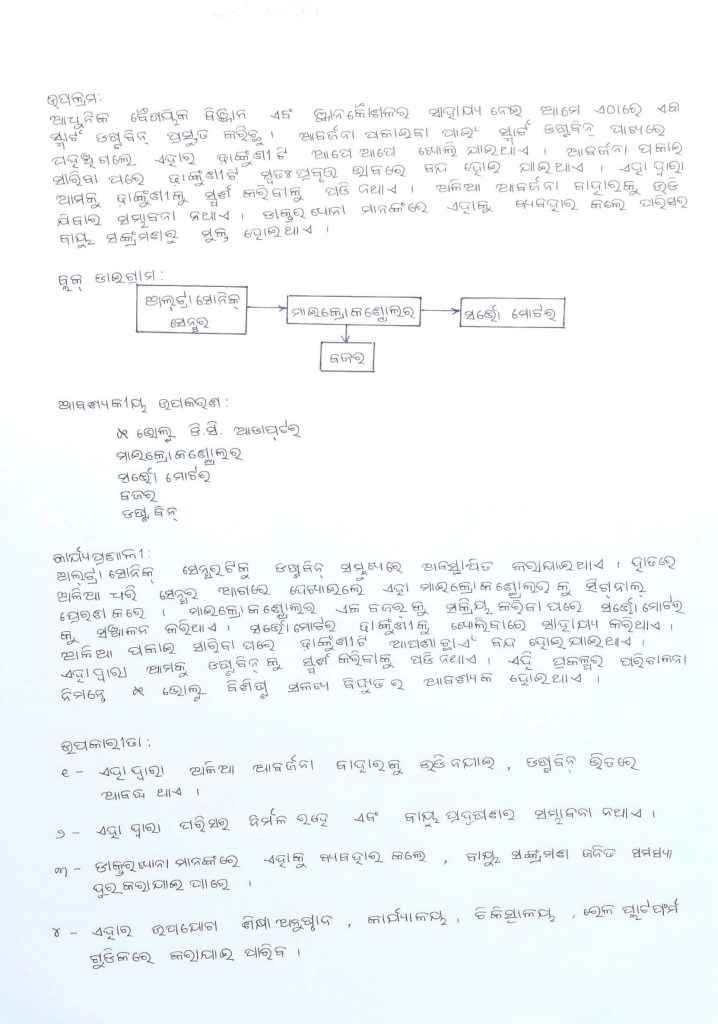 ଉପକ୍ରମ:
ଆଧୁନିକ ବୈଷୟିକ ବିଜ୍ଞାନ ଏବଂ ଜ୍ଞାନକୌଶଳର ସାହାଯ୍ୟ ନେଇ ଆମେ ଏଠାରେ ଏକ
ସ୍ମାର୍ଟ ଡଷ୍ଟବିନ୍ ପ୍ରସ୍ତୁତ କରିଛୁ । ଆବର୍ଜନା ପକାଇବା ପାଇଂ ସ୍ମାର୍ଟ ଡଷ୍ଟବିନ୍ ପାଖରେ
ପହଞ୍ଚିଗଲେ ଏହାର ଢାଙ୍କୁଣୀଟି ଆପେ ଆପେ ଖୋଲି ଯାଇଥାଏ । ଆବର୍ଜନା ପକାଇ
ସାରିବା ପରେ ଢାଙ୍କୁଣୀଟି ସ୍ବତଃପ୍ରବୃତ୍ତ ଭାବରେ ବନ୍ଦ ହୋଇ ଯାଇଥାଏ । ଏହା ଦ୍ୱାରା
ଆମକୁ ଢାଙ୍କୁଣୀକୁ ସ୍ପର୍ଶ କରିବାକୁ ପଡି ନଥାଏ । ଅଳିଆ ଆବର୍ଜନା ବାହାରକୁ ଉଡି
ଯିବାର ସମ୍ଭାବନା ନଥାଏ । ଡାକ୍ତରଖାନା ମାନଙ୍କରେ ଏହାକୁ ବ୍ୟବହାର କଲେ ପରିସର
ବାୟୁ ସଙ୍କ୍ରମଣରୁ ମୁକ୍ତ ହୋଇଥାଏ ।
ବ୍ଲକ୍ ଡାଇଗ୍ରାମ:
ଅଲ୍ଟ୍ରାସୋନିକ୍
ସେନ୍ସର
ମାଇକ୍ରୋକଣ୍ଟ୍ରୋଲର
ସର୍ଭୋ ମୋଟର
ବଜର
ଆବଶ୍ୟକୀୟ ଉପକରଣ:
୫ ଭୋଲ୍ଟ ଡି.ସି. ଆଡାପ୍ଟର
ମାଇକ୍ରୋକଣ୍ଟ୍ରୋଲର
ସର୍ଭୋ ମୋଟର
ବଜର
ଡଷ୍ଟବିନ୍
କାର୍ଯ୍ୟପ୍ରଣାଳୀ:
ଅଲ୍ଟ୍ରାସୋନିକ୍ ସେନ୍ସରଟିକୁ ଡଷ୍ଟବିନ୍ ସମ୍ମୁଖରେ ଅବସ୍ଥାପିତ କରାଯାଇଥାଏ । ହାତରେ
ଅଳିଆ ଧରି ସେନ୍ସର ଆଗରେ ଦେଖାଇଲେ ଏହା ମାଇକ୍ରୋକଣ୍ଟ୍ରୋଲର କୁ ସିଗନାଲ୍
ପ୍ରେରଣ କରେ । ମାଇକ୍ରୋକଣ୍ଟ୍ରୋଲର ଏକ ବଜର କୁ ସକ୍ରିୟ କରିବା ପରେ ସର୍ଭୋ ମୋଟର
କୁ ସଞ୍ଚାଳନ କରିଥାଏ । ସର୍ଭୋ ମୋଟର ଢାଙ୍କୁଣୀକୁ ଖୋଲିବାରେ ସାହାଯ୍ୟ କରିଥାଏ ।
ଆଳିଆ ପକାଇ ସାରିବା ପରେ ଢାଙ୍କୁଣୀଟି ଆପଣାଛାଏଂ ବନ୍ଦ ହୋଇଯାଇଥାଏ ।
ଏହାଦ୍ୱାରା ଆମକୁ ଡଷ୍ଟବିନ୍ କୁ ସ୍ପର୍ଶ କରିବାକୁ ପଡି ନଥାଏ । ଏହି ପ୍ରକଳ୍ପର ପରିଚାଳନା
ନିମନ୍ତେ ୫ ଭୋଲ୍ଟ ବିଶିଷ୍ଟ ସଳଖ ବିଦ୍ୟୁତର ଆବଶ୍ୟକ ହୋଇଥାଏ ।
ଉପକାରୀତା:
୧ - ଏହା ଦ୍ୱାରା ଅଳିଆ ଆବର୍ଜନା ବାହାରକୁ ଉଡିନଯାଇ , ଡଷ୍ଟବିନ୍ ଭିତରେ
ଆବଦ୍ଧ ଥାଏ ।
୨ - ଏହା ଦ୍ୱାରା ପରିସର ନିର୍ମଳ ରହେ ଏବଂ ବାୟୁ ପ୍ରଦୂଷଣର ସମ୍ଭାବନା ନଥାଏ ।
୩ - ଡାକ୍ତରଖାନା ମାନଙ୍କରେ ଏହାକୁ ବ୍ୟବହାର କଲେ , ବାୟୁ ସଙ୍କ୍ରମଣ ଜନିତ ସମସ୍ୟା
ଦୂର କରାଯାଇ ପାରେ ।
୪ - ଏହାର ଉପଯୋଗ ଶିକ୍ଷା ଅନୁଷ୍ଠାନ , କାର୍ଯ୍ୟାଳୟ , ଚିକିତ୍ସାଳୟ , ରେଳ ପ୍ଲାଟଫର୍ମ
ଗୁଡିକରେ କରାଯାଇ ପାରିବ ।